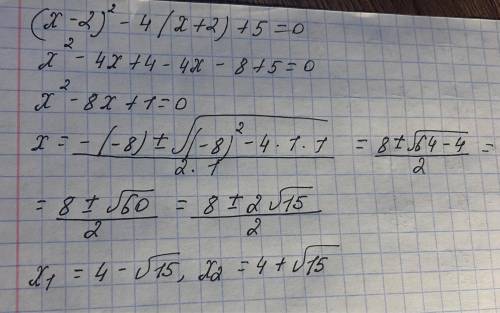 (x-2)² - 4(x+2) + 5 = 0
x² - 4x + 4 - 4x - 8 + 5 = 0
x² - 8x + 1 = 0
x = (-(-8) ± √((-8)² - 4·1·1))/(2·1) = (8 ± √(64-4))/2 =
= (8 ± √60)/2 = (8 ± 2√15)/2
x₁ = 4 - √15, x₂ = 4 + √15